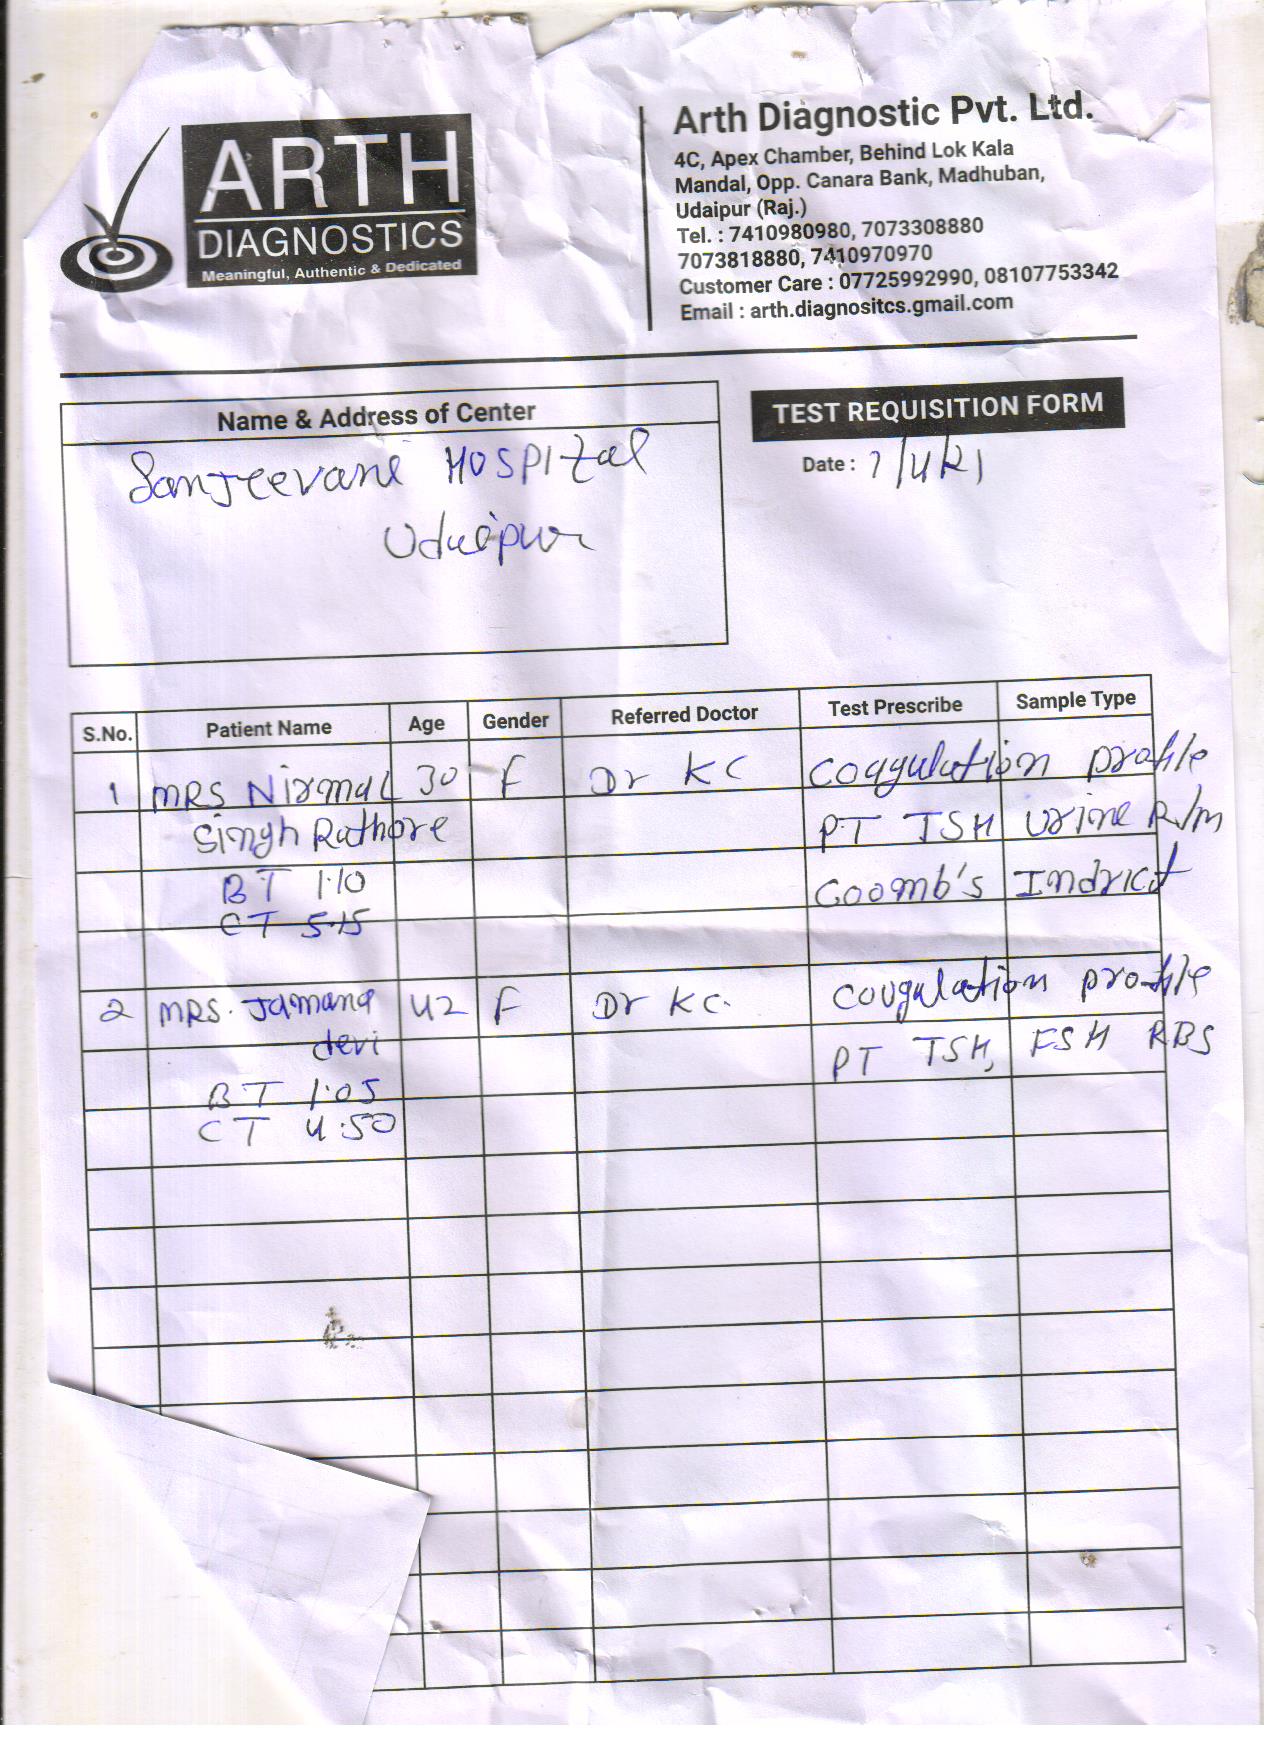 ARTH
DIAGNOSTICS
Meaningful, Authentic & Dedicated
Arth Diagnostic Pvt. Ltd.
4C, Apex Chamber, Behind Lok Kala
Mandal, Opp. Canara Bank, Madhuban,
Udaipur (Raj.)
Tel. : 7410980980, 7073308880
7073818880, 7410970970
Customer Care : 07725992990, 08107753342
Email : arth.diagnositcs.gmail.com
Name & Address of Center
Sanjeevani HOSPITal
Udaipur
TEST REQUISITION FORM
Date : 7/4/21
S.No. Patient Name Age Gender Referred Doctor Test Prescribe Sample Type
1 MRS Nirmal 30 F Dr KC Coagulation profile
Singh Rathore PT TSH Urine R/m
BT 1.10 Coomb's Indrict
CT 5.15
2 MRS. Jamana 42 F Dr KC. Cougulation profile
devi PT TSH, FSH RBS
BT 1.05
CT 4.50